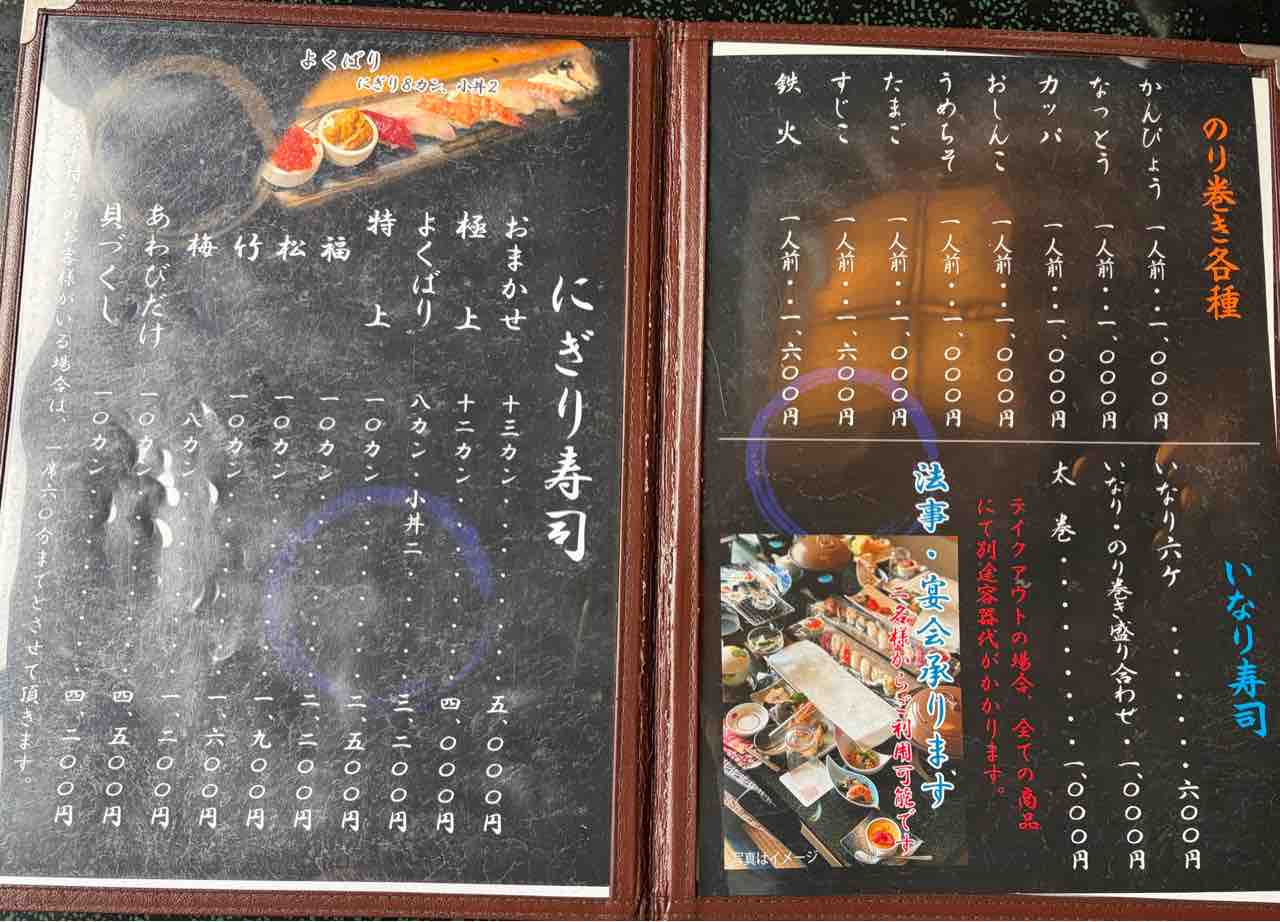 のり巻き各種
かんぴょう 一人前・・一、〇〇〇円
なっとう 一人前・・一、〇〇〇円
カッパ 一人前・・一、〇〇〇円
おしんこ 一人前・・一、〇〇〇円
うめちそ 一人前・・一、〇〇〇円
たまご 一人前・・一、〇〇〇円
すじこ 一人前・・一、六〇〇円
鉄火 一人前・・一、六〇〇円
いなり寿司
いなり六ケ・・・・・・・六〇〇円
いなり・のり巻き盛り合わせ・一、〇〇〇円
太巻・・・・・・・・・・一、〇〇〇円
テイクアウトの場合、全ての商品
にて別途容器代がかかります。
法事・宴会承ります
二名様からご利用可能です
写真はイメージ
よくばり
にぎり8カン、小丼2
にぎり寿司
おまかせ 十三カン・・・・・・・五、〇〇〇円
極上 十二カン・・・・・・・四、〇〇〇円
よくばり 八カン・小丼二・・・・三、二〇〇円
特上 一〇カン・・・・・・・二、五〇〇円
福 一〇カン・・・・・・・二、二〇〇円
松 一〇カン・・・・・・・一、九〇〇円
竹 一〇カン・・・・・・・一、六〇〇円
梅 八カン・・・・・・・一、二〇〇円
あわびだけ 一〇カン・・・・・・・四、五〇〇円
貝づくし 一〇カン・・・・・・・四、二〇〇円
待ちのお客様がいる場合は、一席六〇分までとさせて頂きます。